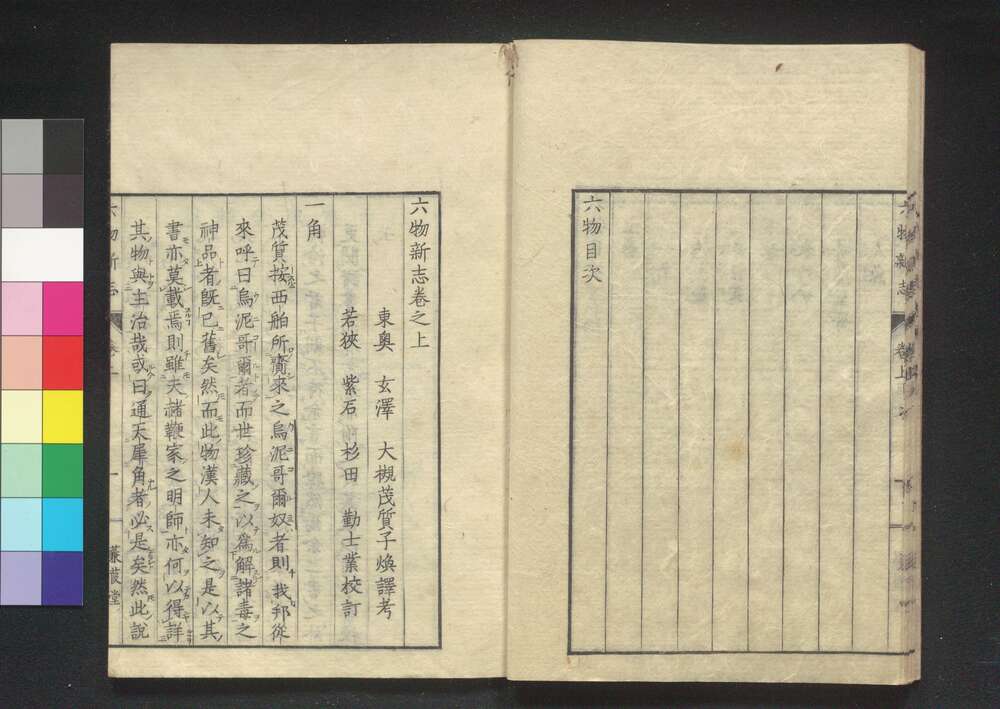 六物新志 卷上
六物目次
六物新志卷之上
東奥 玄澤 大槻茂質子煥譯考
若狹 紫石 杉田 勤士業校訂
一角
茂質按西舶所賷來之烏泥哥爾奴者則我邦從
來呼曰烏泥哥爾者而世珍藏之以爲解諸毒之
神品者旣已舊矣然而此物漢人未知之是以其
書亦莫載焉則雖夫禇鞭家之明師亦何以得詳
其物與主治哉或曰通天犀角者必是矣然此說
六物新志 卷上 一 蒹葭堂